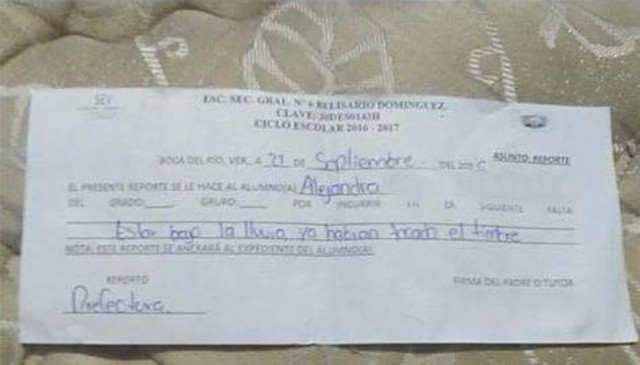 SEV
ESC. SEC. GRAL. N° 6 BELISARIO DOMINGUEZ
CLAVE: 30DES0143H
CICLO ESCOLAR 2016 - 2017
BOCA DEL RÍO, VER. A 27 DE Septiembre DEL 201
ASUNTO: REPORTE
EL PRESENTE REPORTE SE LE HACE AL ALUMNO(A) Alejandra
DEL GRADO: GRUPO: POR INCURRIR EN LA SIGUIENTE FALTA:
Estar bajo la lluvia, ya habian tocado el timbre
NOTA: ESTE REPORTE SE ANEXARÁ AL EXPEDIENTE DEL ALUMNO(A)
REPORTO FIRMA DEL PADRE O TUTOR
Prefectura